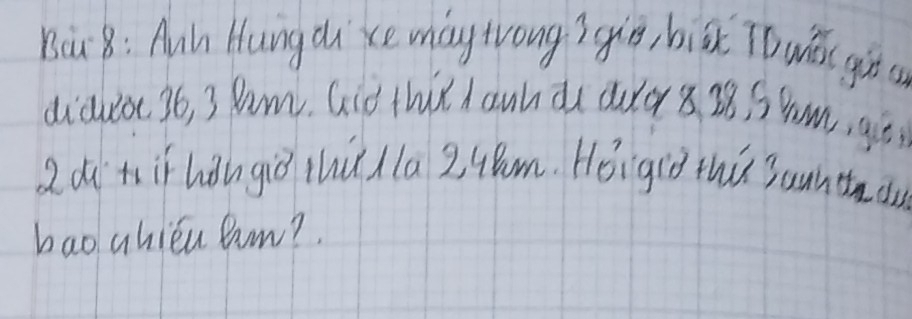 Bài 8: Anh Hùng đi xe máy trong 3 giờ, biết TB mỗi giờ anh
đi được 36,3 km. Giờ thứ 1 anh đi được 38,5 km, giờ
2 đi ít hơn giờ thứ 1 là 2,4km. Hỏi giờ thứ 3 anh ta
bao nhiêu km?.